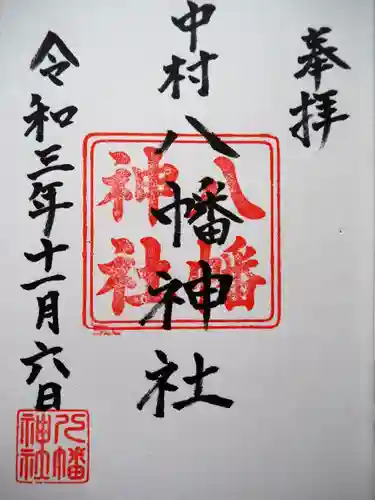 奉拝
中村八幡神社
八幡
神社
令和三年十一月六日
八幡
神社